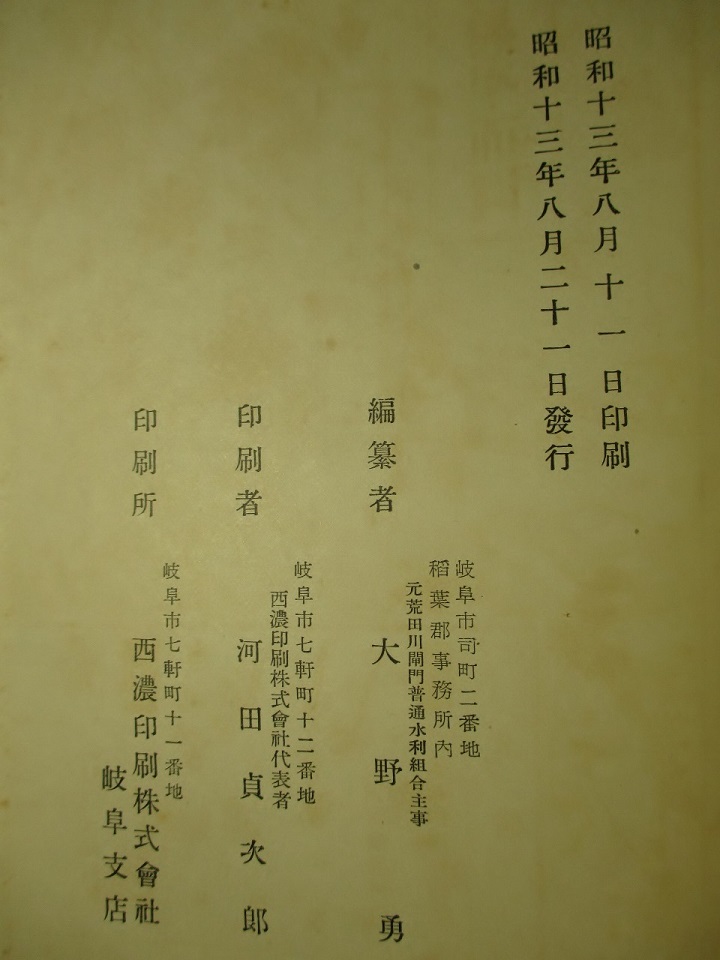 昭和十三年八月十一日印刷
昭和十三年八月二十一日發行
岐阜市司町二番地
稻葉郡事務所內
元荒田川閘門普通水利組合主事
編纂者 大野勇
岐阜市七軒町十二番地
西濃印刷株式會社代表者
印刷者 河田貞次郎
岐阜市七軒町十一番地
印刷所 西濃印刷株式會社
岐阜支店